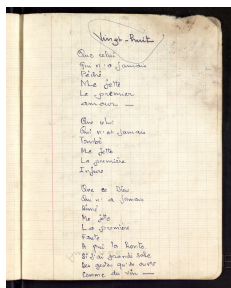 Vingt-huit
Que celui
Qui n'a jamais
Pédré
Me jette
Le premier
amour —
Que celui
Qui n'est jamais
Tombé
Me jette
La première
Injure
Que ce Dieu
Qui n'a jamais
Aimé
Me jette
La première
Faute
A qui la honte
Si j'ai grandi
comme du vin —